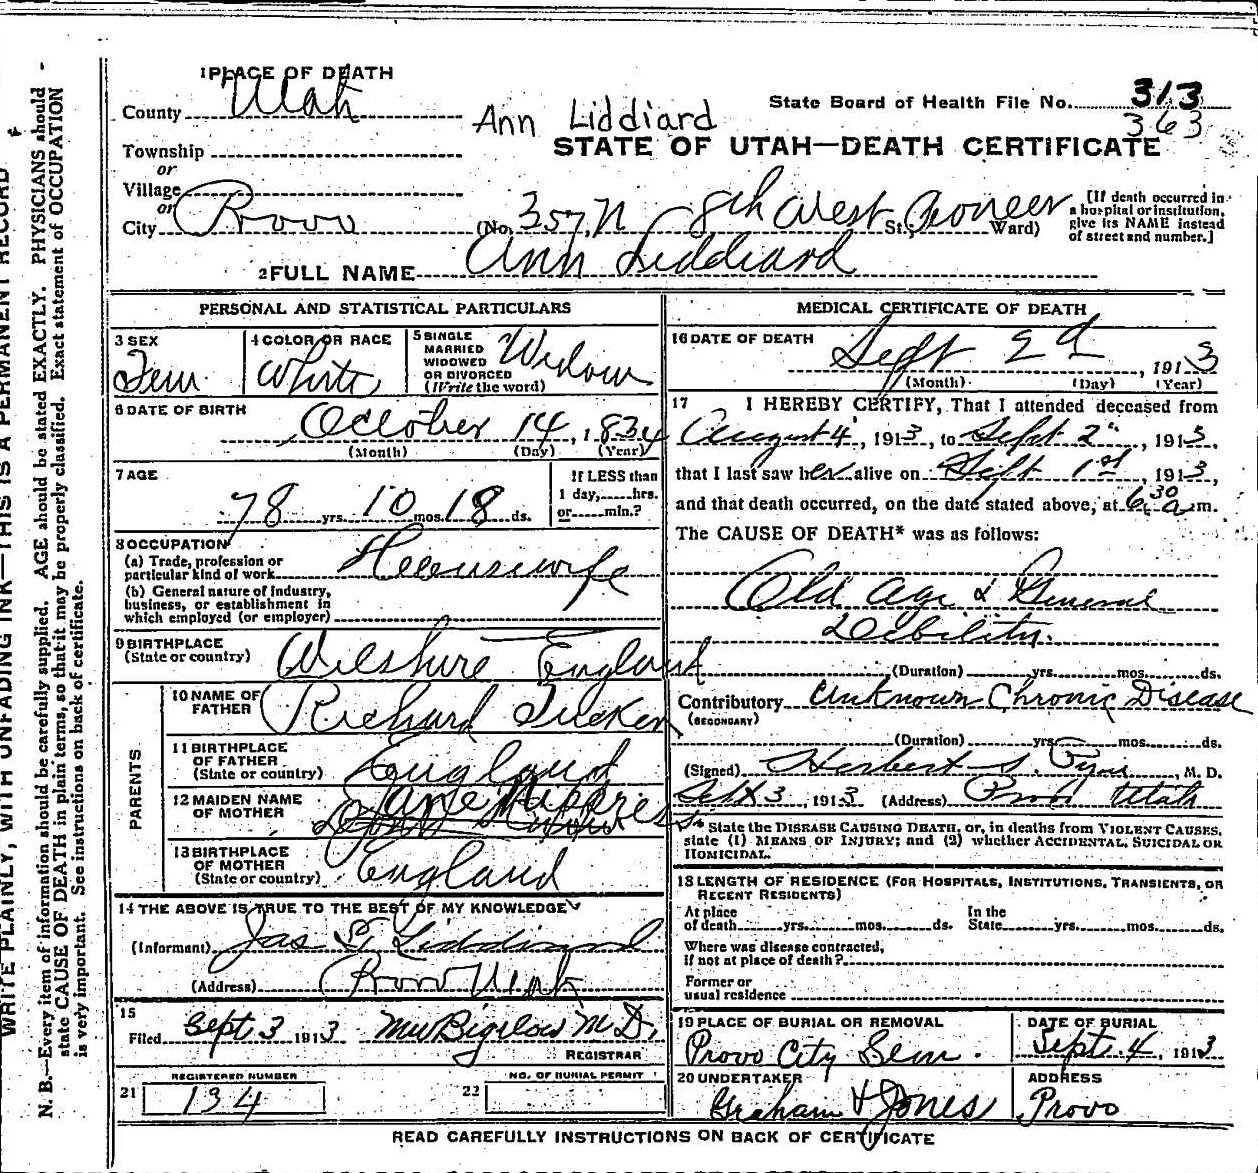 1 PLACE OF DEATH
County Utah
Ann Liddiard
State Board of Health File No. 313
363
STATE OF UTAH—DEATH CERTIFICATE
Township
or
Village
or
City Provo
(No. 357 N 8th West St., Pioneer Ward)
[If death occurred in a hospital or institution, give its NAME instead of street and number.]
2 FULL NAME Ann Liddiard
PERSONAL AND STATISTICAL PARTICULARS
3 SEX
Fem
4 COLOR OR RACE
White
5 SINGLE MARRIED WIDOWED OR DIVORCED (Write the word)
Widow
6 DATE OF BIRTH
October 14, 1834
(Month) (Day) (Year)
7 AGE
78 yrs. 10 mos. 18 ds.
If LESS than 1 day,......hrs. or......min.?
8 OCCUPATION
(a) Trade, profession or particular kind of work Housewife
(b) General nature of industry, business, or establishment in which employed (or employer)
9 BIRTHPLACE
(State or country) Wilshire England
PARENTS
10 NAME OF FATHER Richard Tucker
11 BIRTHPLACE OF FATHER (State or country) England
12 MAIDEN NAME OF MOTHER Jane
13 BIRTHPLACE OF MOTHER (State or country) England
14 THE ABOVE IS TRUE TO THE BEST OF MY KNOWLEDGE
(Informant) Jas S Liddiard
(Address) Provo Utah
15
Filed Sept 3 1913 Bigelow M D.
REGISTRAR
REGISTERED NUMBER
21 134
NO. OF BURIAL PERMIT
22
MEDICAL CERTIFICATE OF DEATH
16 DATE OF DEATH
Sept 2d, 1913
(Month) (Day) (Year)
17 I HEREBY CERTIFY, That I attended deceased from
August 4, 1913, to Sept 2", 1913,
that I last saw her alive on Sept 1st, 1913,
and that death occurred, on the date stated above, at 6:30 a.m.
The CAUSE OF DEATH* was as follows:
Old Age & General
Debility.
(Duration) yrs. mos. ds.
Contributory Unknown Chronic Disease
(SECONDARY)
(Duration) yrs. mos. ds.
(Signed) Herbert S. Pyne, M. D.
Sept 3, 1913 (Address) Provo Utah
* State the DISEASE CAUSING DEATH, or, in deaths from VIOLENT CAUSES, state (1) MEANS OF INJURY; and (2) whether ACCIDENTAL, SUICIDAL OR HOMICIDAL.
18 LENGTH OF RESIDENCE (FOR HOSPITALS, INSTITUTIONS, TRANSIENTS, OR RECENT RESIDENTS)
At place of death......yrs......mos......ds. In the State......yrs......mos......ds.
Where was disease contracted, if not at place of death?
Former or usual residence
19 PLACE OF BURIAL OR REMOVAL
Provo City Cem.
DATE OF BURIAL
Sept. 4, 1913
20 UNDERTAKER
Graham & Jones
ADDRESS
Provo
READ CAREFULLY INSTRUCTIONS ON BACK OF CERTIFICATE
WRITE PLAINLY, WITH UNFADING INK—THIS IS A PERMANENT RECORD
N. B.—Every item of information should be carefully supplied. AGE should be stated EXACTLY. PHYSICIANS should
state CAUSE OF DEATH in plain terms, so that it may be properly classified. Exact statement of OCCUPATION
is very important. See instructions on back of certificate.